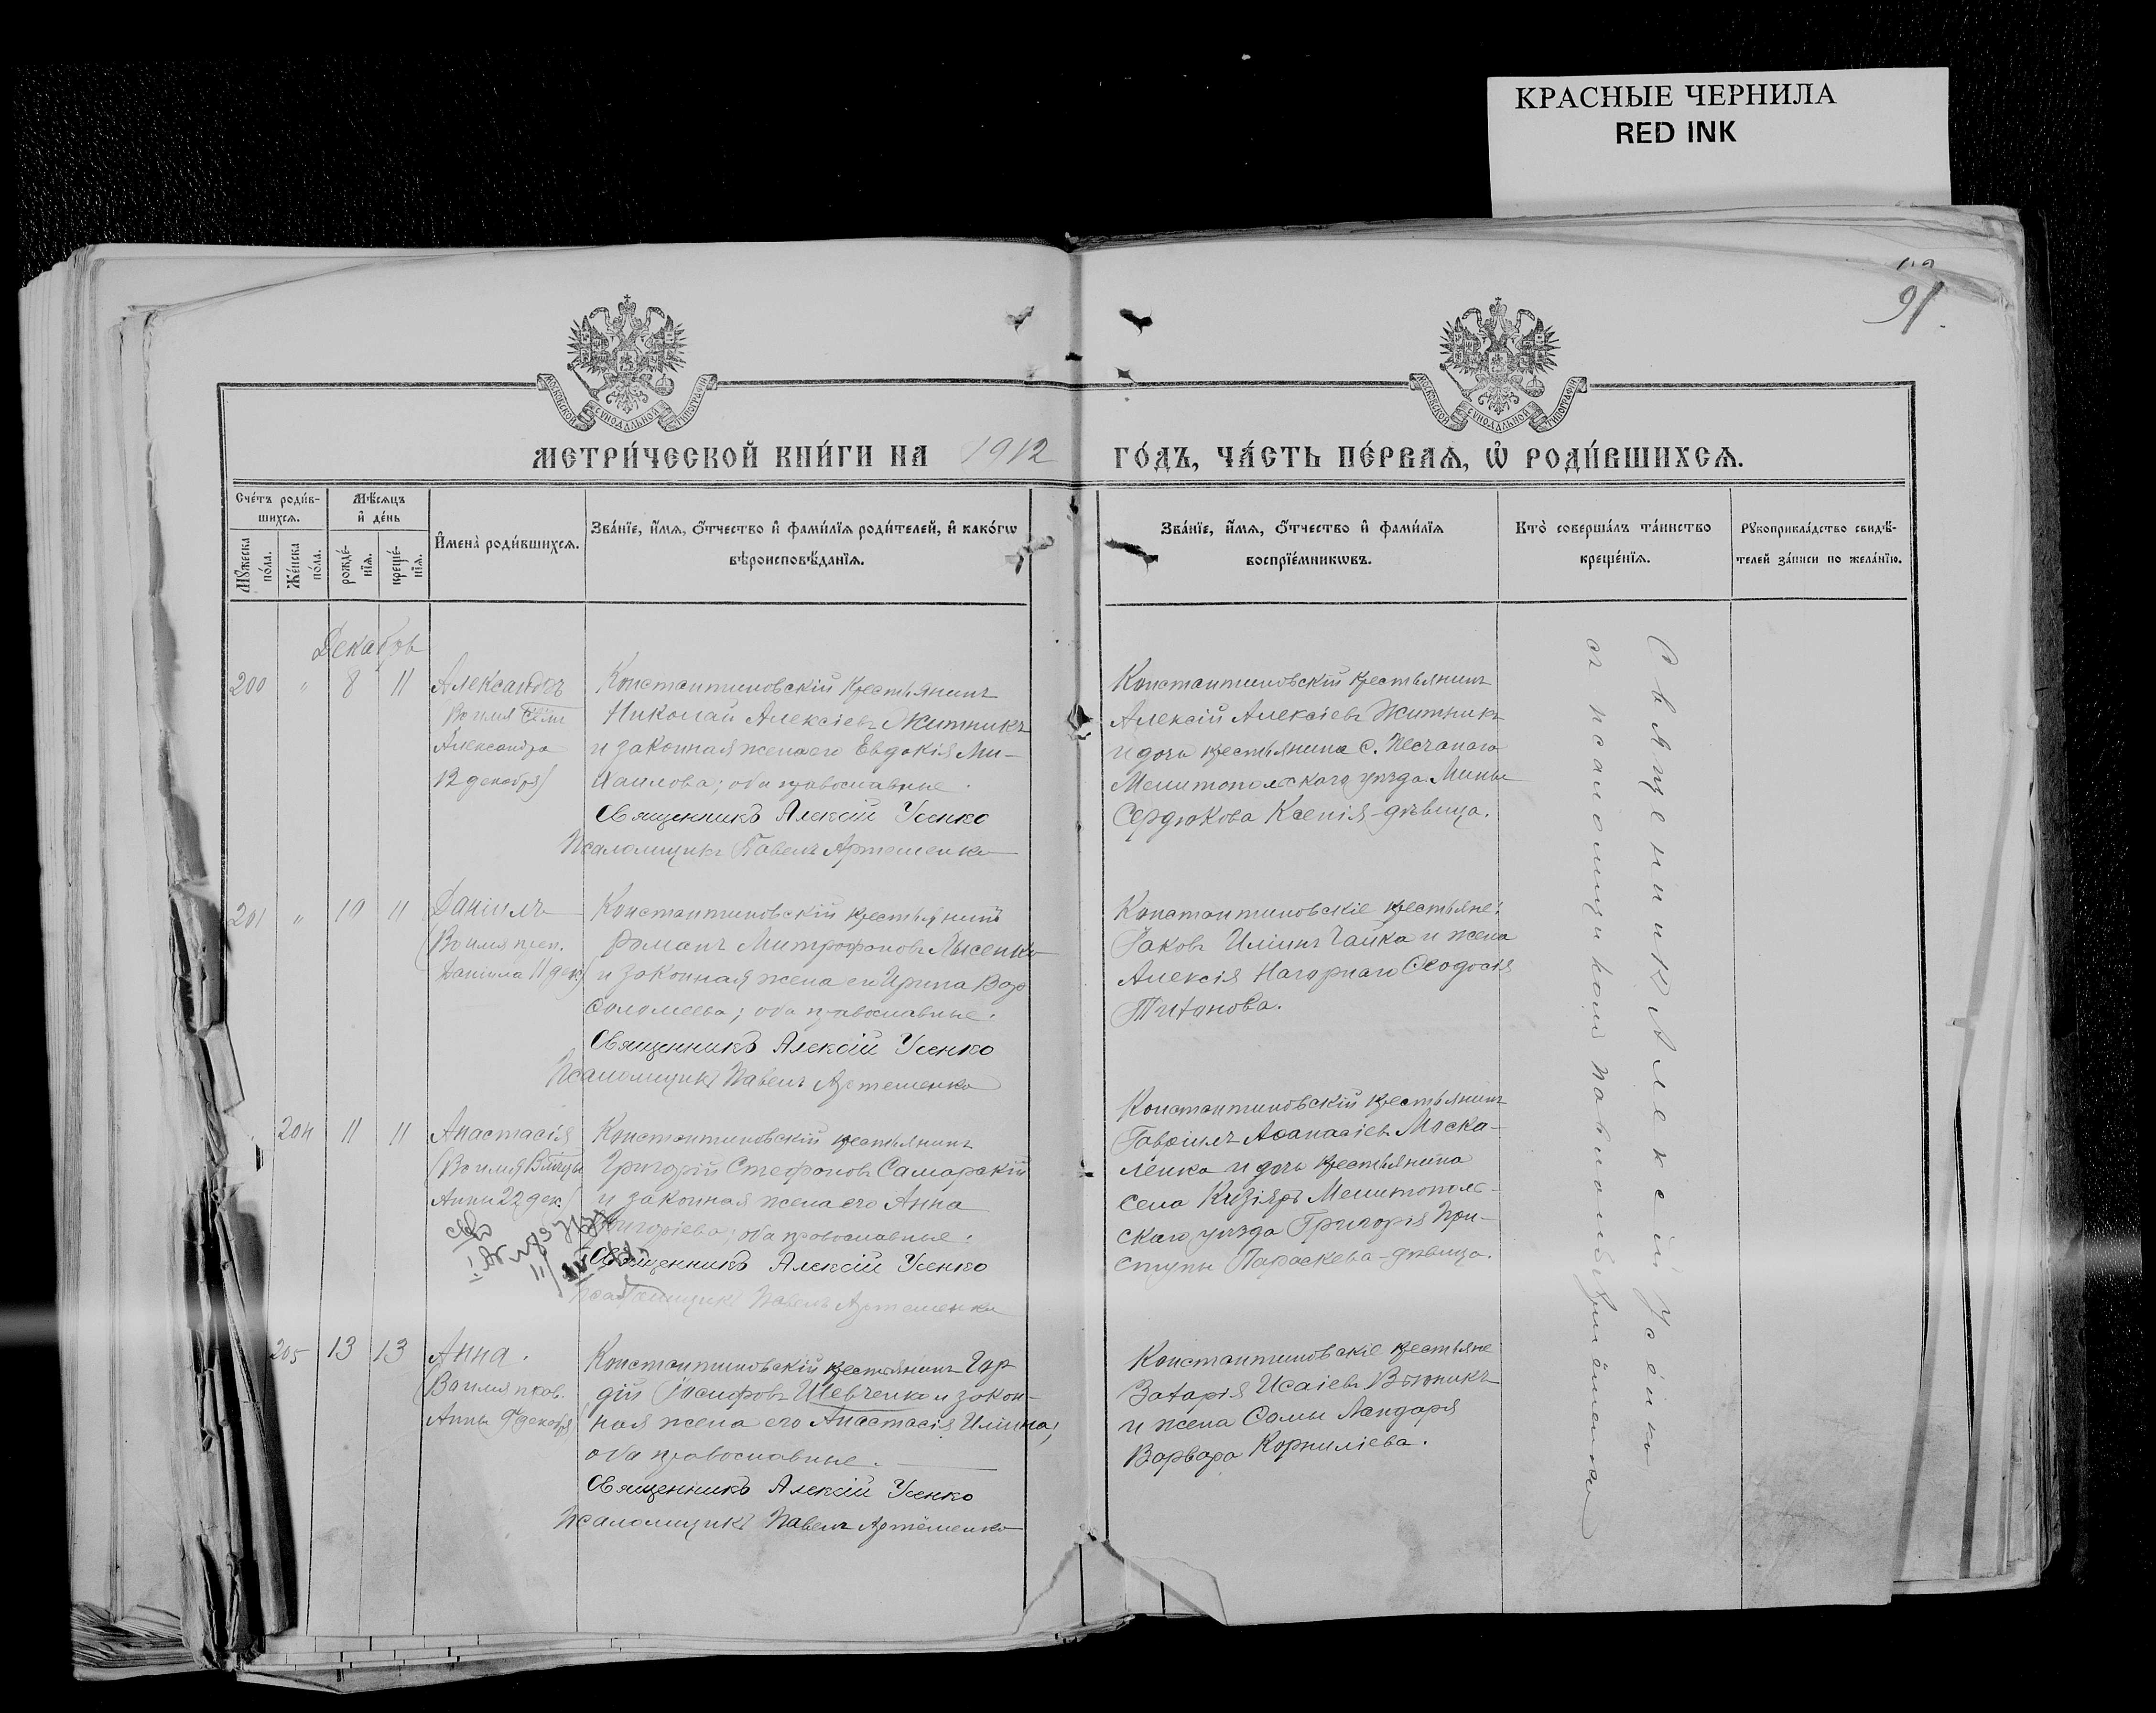 КРАСНЫЕ ЧЕРНИЛА
RED INK
91.
МОСКОВСКОЙ СѴНОДАЛЬНОЙ ТИПОГРАФІИ
МОСКОВСКОЙ СѴНОДАЛЬНОЙ ТИПОГРАФІИ
МЕТРИ́ЧЕСКОЙ КНИ́ГИ НА 1912 ГО́ДЪ, ЧА́СТЬ ПЕ́РВАѦ, Ѡ҆ РОДИ́ВШИХСѦ.
Сче́тъ роди́в-
шихсѧ.
Мꙋжеска по́ла.
Же́нска по́ла.
Мѣ́сѧцъ
и҆ де́нь
рожде́-
нїѧ.
креще́-
нїѧ.
И҆мена̀ роди́вшихсѧ.
Зва́нїе, и҆́мѧ, ѻ҆́тчество и҆ фами́лїѧ роди́телей, и҆ како́гѡ
вѣроисповѣ́данїѧ.
Зва́нїе, и҆́мѧ, ѻ҆́тчество и҆ фами́лїѧ
воспрїе́мникѡвъ.
Кто̀ соверша́лъ та́инство
креще́нїѧ.
Рꙋкоприкла́дство свидѣ́-
телей за́писи по жела́нїю.
Декабрь
200 " 8 11
Александръ
Во имя
Александра
12 декабря)
Константиновскій крестьянинъ
Николай Алексіевъ Житникъ
и законная жена его Евдокія Ми-
хаилова; оба православные.
Священникъ Алексій Усенко
Псаломщикъ Павелъ Артеменко
Константиновскій крестьянинъ
Алексій Алексіевъ Житникъ
и дочь крестьянина с. Песчанаго
Мелитопольскаго уѣзда Мины
Сердюкова Ксенія-дѣвица.
201 " 10 11
Даніилъ
(Во имя преп.
Даніила 11 дек.)
Константиновскій крестьянинъ
Романъ Митрофановъ Лысенко
и законная жена его Ирина Вар-
ѳоломеева; оба православные.
Священникъ Алексій Усенко
Псаломщикъ Павелъ Артеменко
Константиновскіе крестьяне:
Іаковъ Иліинъ Чайка и жена
Алексія Нагорнаго Ѳеодосія
Титанова.
204 11 11
Анастасія
(Во имя Вмчцы
Анны 22 дек.)
Константиновскій крестьянинъ
Григорій Стефановъ Самарскій
и законная жена его Анна
Григоріева; оба православные.
Священникъ Алексій Усенко
Псаломщикъ Павелъ Артеменко
Константиновскій крестьянинъ
Гавріилъ Аѳанасіевъ Моска-
ленко и дочь крестьянина
села Кизіяръ Мелитополь-
скаго уѣзда Григорія При-
ступы Параскева-дѣвица.
205 13 13
Анна.
(Во имя прав.
Анны 9 декабря)
Константиновскій крестьянинъ Гор-
дій Іосифовъ Шевченко и закон-
ная жена его Анастасія Иліина;
оба православные.
Священникъ Алексій Усенко
Псаломщикъ Павелъ Артеменко
Константиновскіе крестьяне
Захарія Исаіевъ Вьюникъ
и жена Сомы Ландаря
Варвара Корниліева.
Священникъ Алексій Усенко
съ псаломщикомъ Павломъ Артёменко